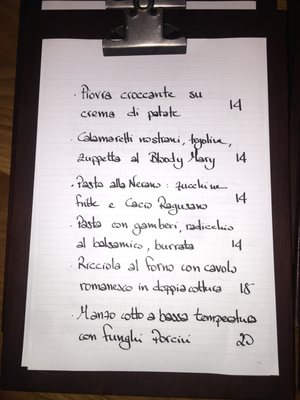 · Piovra croccante su
crema di patate 14
· Calamaretti nostrani, tegoline,
zuppetta al Bloody Mary 14
· Pasta alla Nerano: zucchine
fritte e Cacio Ragusano 14
· Pasta con gamberi, radicchio
al balsamico, burrata 14
· Ricciola al forno con cavolo
romanesco in doppia cottura 18
· Manzo cotto a bassa temperatura
con funghi Porcini 20